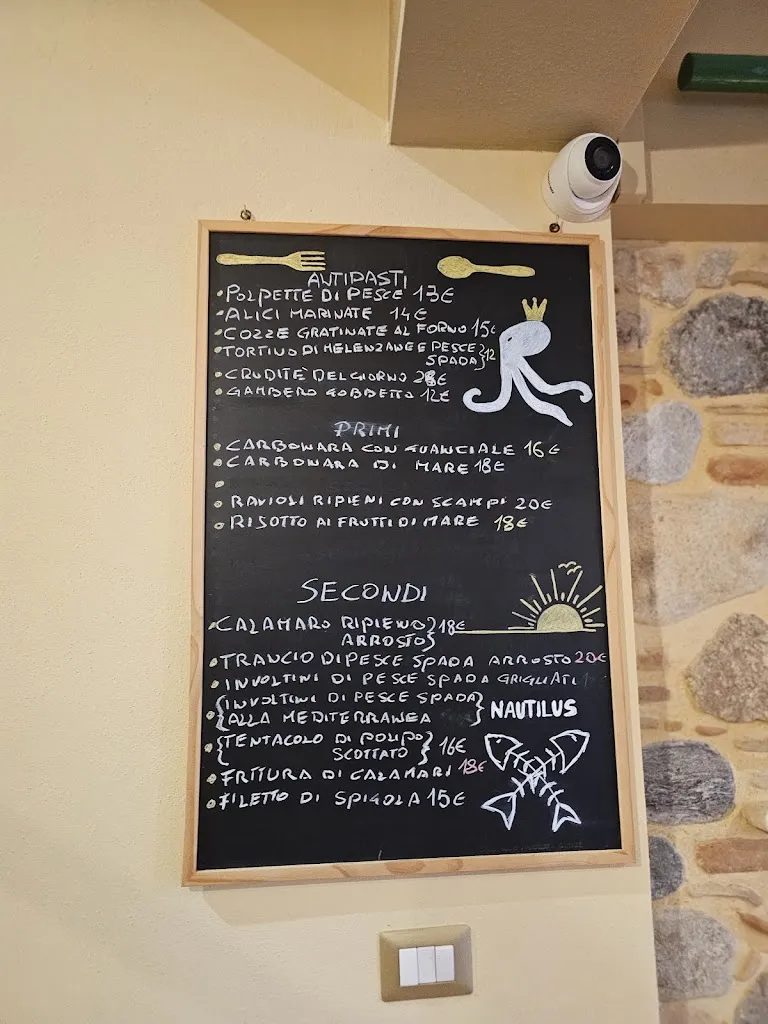 ANTIPASTI
•POLPETTE DI PESCE 13€
•ALICI MARINATE 14€
•COZZE GRATINATE AL FORNO 15€
•TORTINO DI MELENZANE E PESCE
SPADA} 12
•CRUDITÈ DEL GIORNO 28€
•GAMBERO GOBBETTO 12€
PRIMI
•CARBONARA CON GUANCIALE 16€
•CARBONARA DI MARE 18€
•
•RAVIOLI RIPIENI CON SCAMPI 20€
•RISOTTO AI FRUTTI DI MARE 18€
SECONDI
•CALAMARO RIPIENO} 18€
ARROSTO}
•TRANCIO DI PESCE SPADA ARROSTO 20€
•INVOLTINI DI PESCE SPADA GRIGLIATI
•{INVOLTINI DI PESCE SPADA}
ALLA MEDITERRANEA
NAUTILUS
•{TENTACOLO DI POLIPO} 16€
SCOTTATO
•FRITTURA DI CALAMARI 18€
•FILETTO DI SPIGOLA 15€